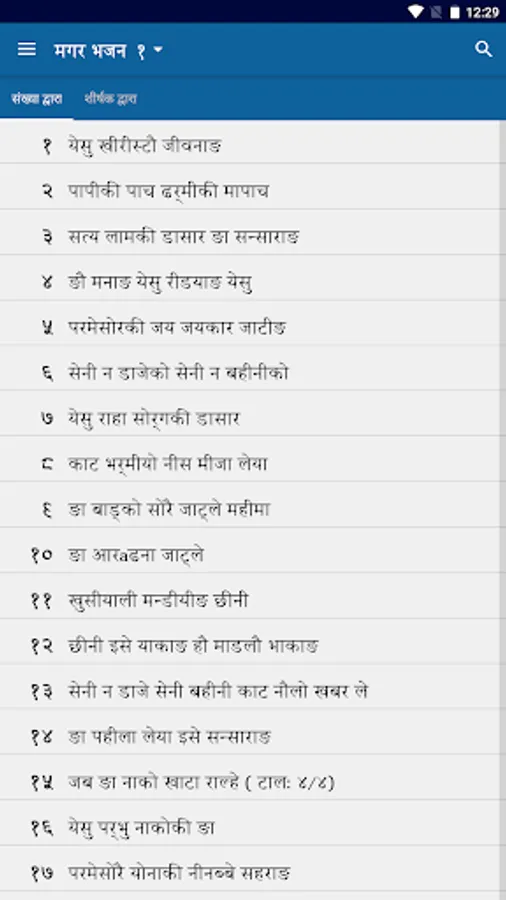 12:29
मगर भजन १
संख्या द्वारा शीर्षक द्वारा
१ येसु ख्रीरीस्टौ जीवनाङ
२ पापीकी पाच ढर्‌मीकी मापाच
३ सत्य लामकी डासार ङा सन्साराङ
४ ङौ मनाङ येसु रीडयाङ येसु
५ परमेसोरकी जय जयकार जाटीङ
६ सेनी न डाजेको सेनी न बहीनीको
७ येसु राहा सोर्‌गकी डासार
८ काट भर्‌मीयो नीस मीजा लेया
९ ङा बाड्को सोरै जाट्ले महीमा
१० ङा आरaढना जाट्ले
११ खुसीयाली मन्डीयीङ छीनी
१२ छीनी इसे याकाङ हौ माडलौ भाकाङ
१३ सेनी न डाजे सेनी बहीनी काट नौलो खबर ले
१४ ङा पहीला लेया इसे सन्साराङ
१५ जब ङा नाको खाटा राल्हे ( टालः ४/४)
१६ येसु पर्‌भु नाकोकी ङा
१७ परमेसोरै योनाकी नीनब्बे सहराङ